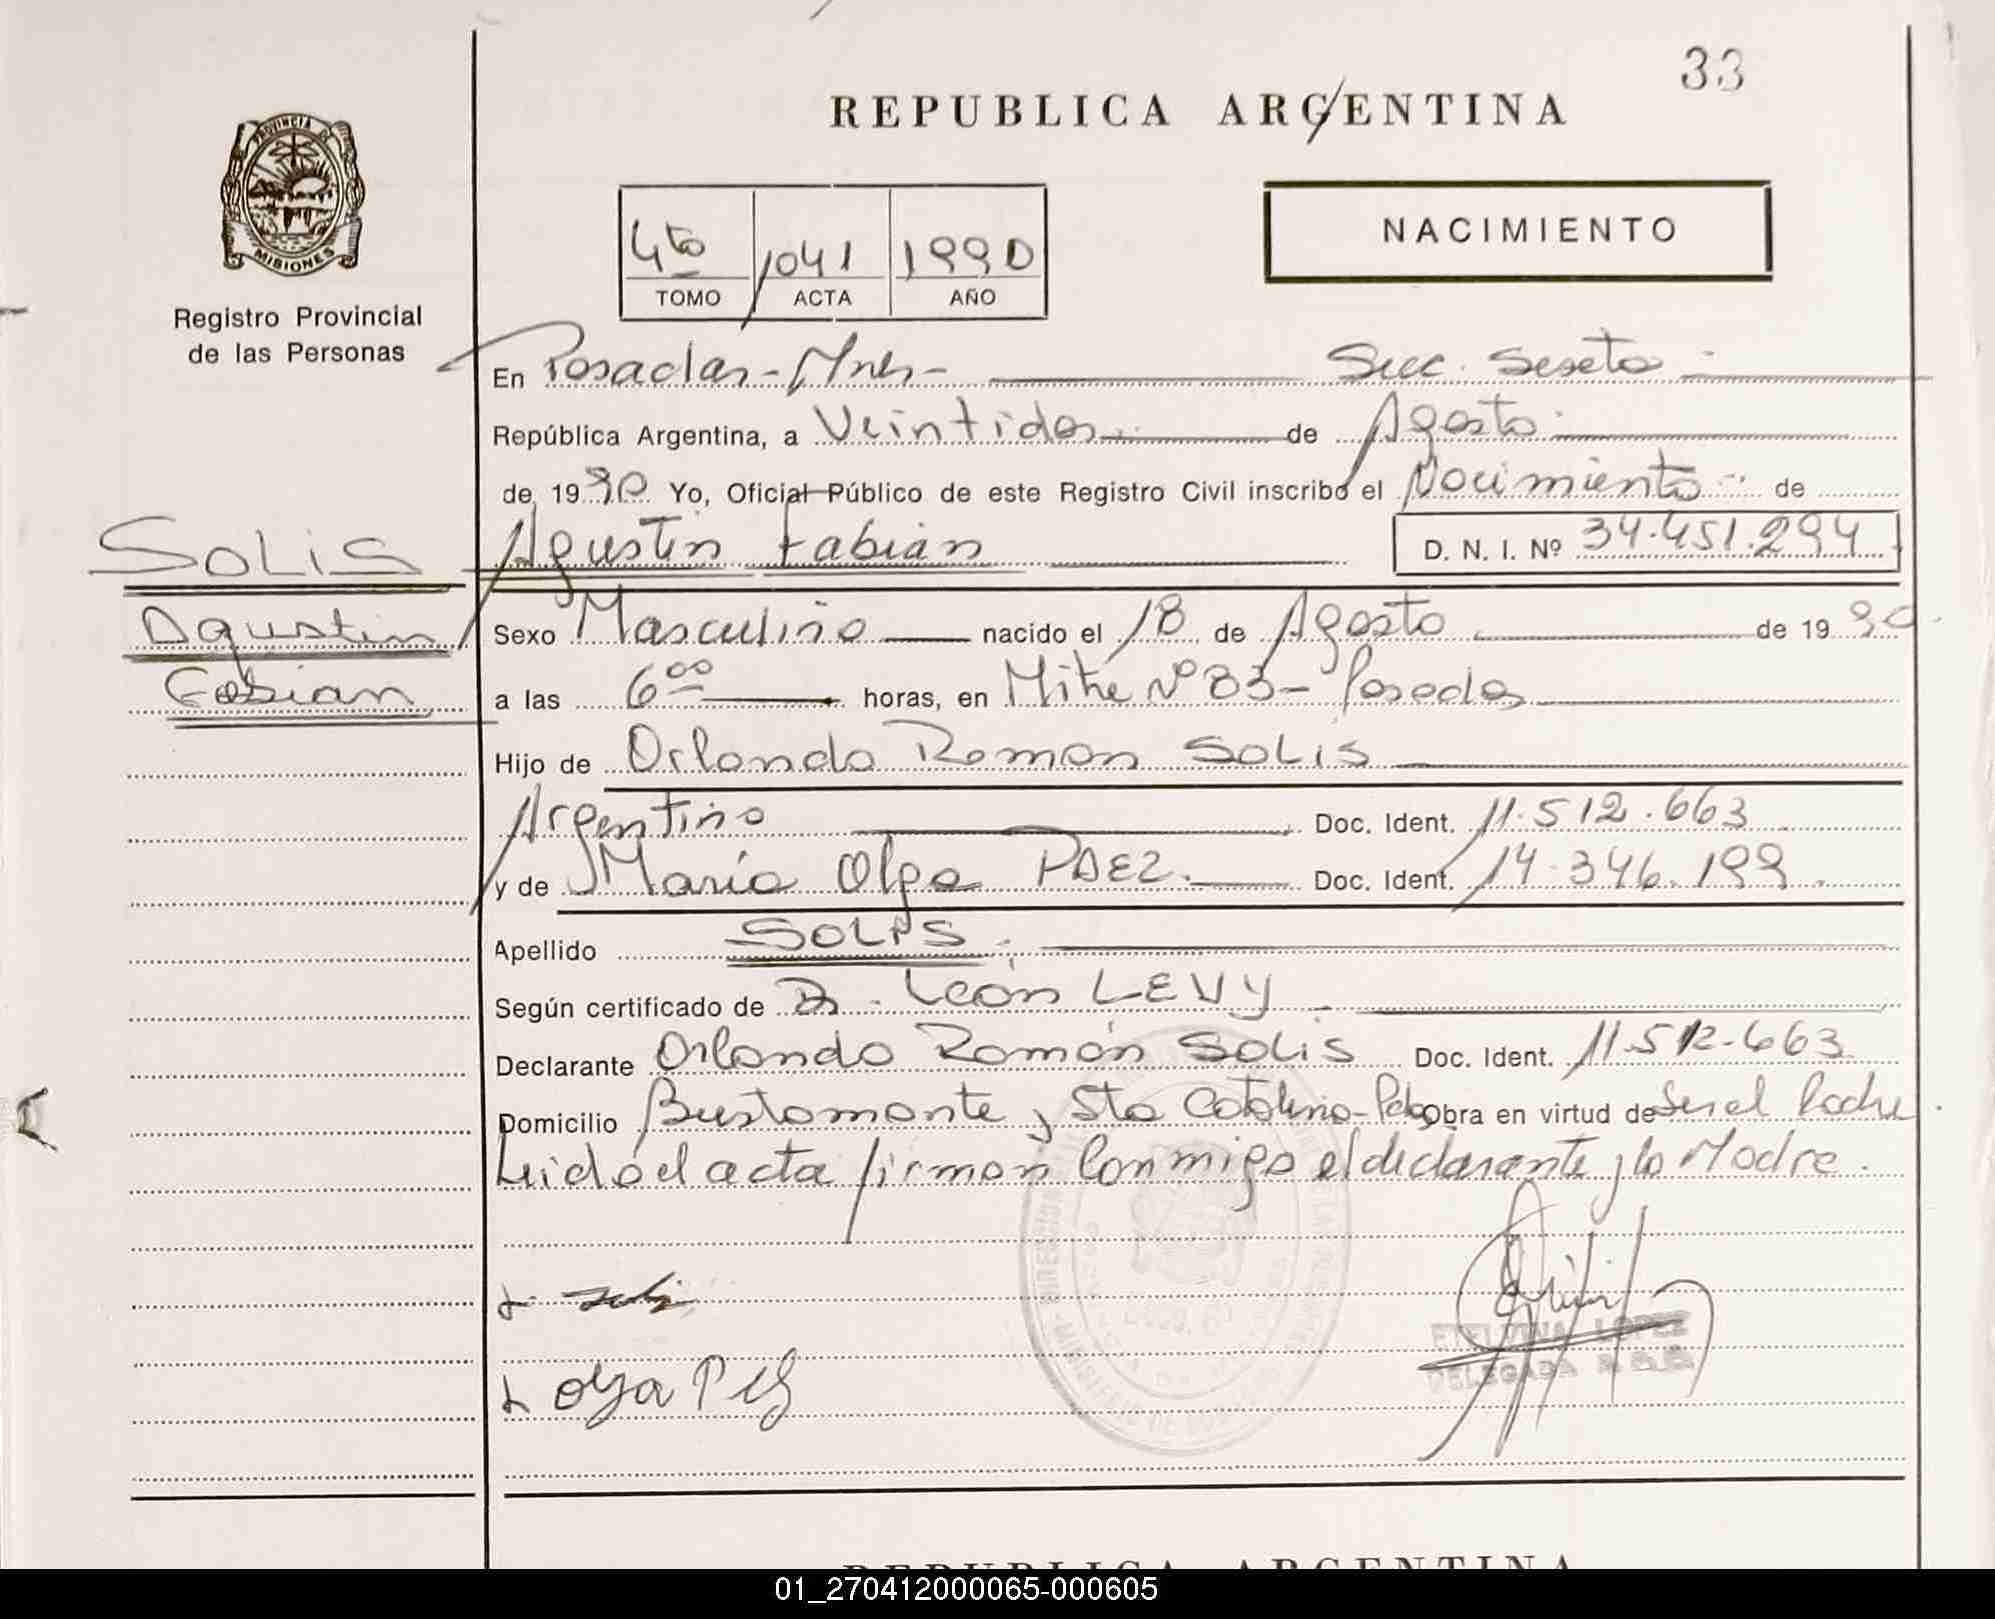 33
REPUBLICA ARGENTINA
PROVINCIA DE
MISIONES
Registro Provincial
de las Personas
4to 1041 1990
TOMO ACTA AÑO
NACIMIENTO
En Posadas - Mnes - Secc. Sexta
República Argentina, a Veintidos de Agosto
de 1990 Yo, Oficial Público de este Registro Civil inscribo el Nacimiento de
SOLIS
Agustin Fabian D. N. I. Nº 34.451.294
Agustin
Fabian
Sexo Masculino nacido el 18 de Agosto de 1990
a las 6 00 horas, en Mitre Nº 83 - Posadas
Hijo de Orlando Ramon SOLIS
Argentino Doc. Ident. 11.512.663
y de María Olga PAEZ Doc. Ident. 14.346.199
Apellido SOLIS
Según certificado de Dr. León LEVY
Declarante Orlando Ramón SOLIS Doc. Ident. 11.512.663
Domicilio Bustamante y Sta Catalina - Obra en virtud de Ser el Padre
Leido el acta firman Conmigo el declarante y la Madre.
Solis
ETELVINA LOPEZ
DELEGADA
Olga
REPUBLICA ARGENTINA
01_270412000065-000605